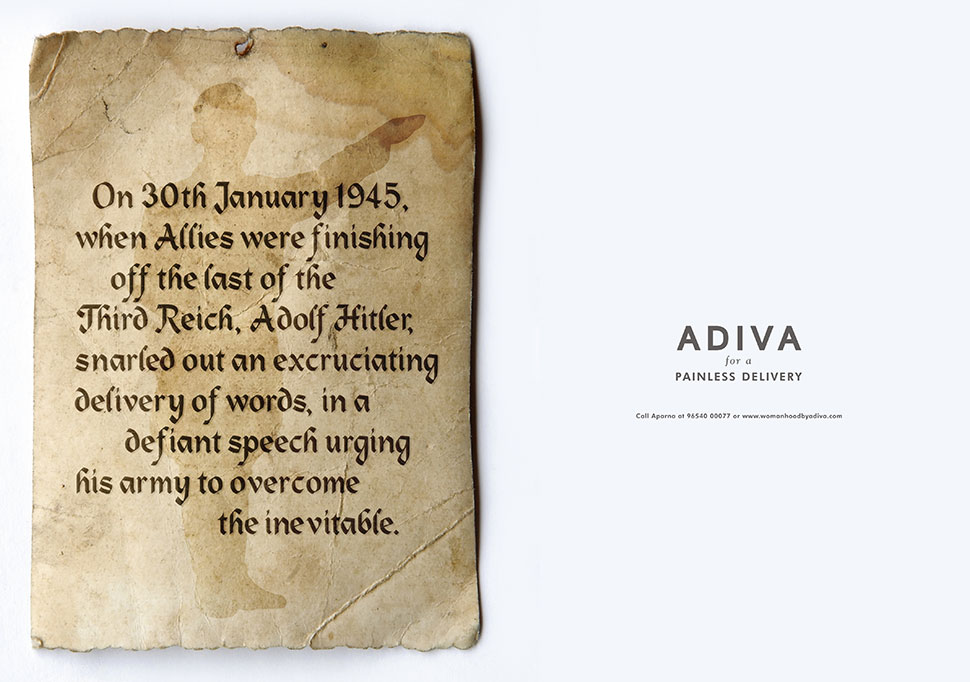 On 30th January 1945,
when Allies were finishing
off the last of the
Third Reich, Adolf Hitler,
snarled out an excruciating
delivery of words, in a
defiant speech urging
his army to overcome
the inevitable.
ADIVA
for a
PAINLESS DELIVERY
Call Aparna at 96540 00077 or www.womanhoodbyadiva.com